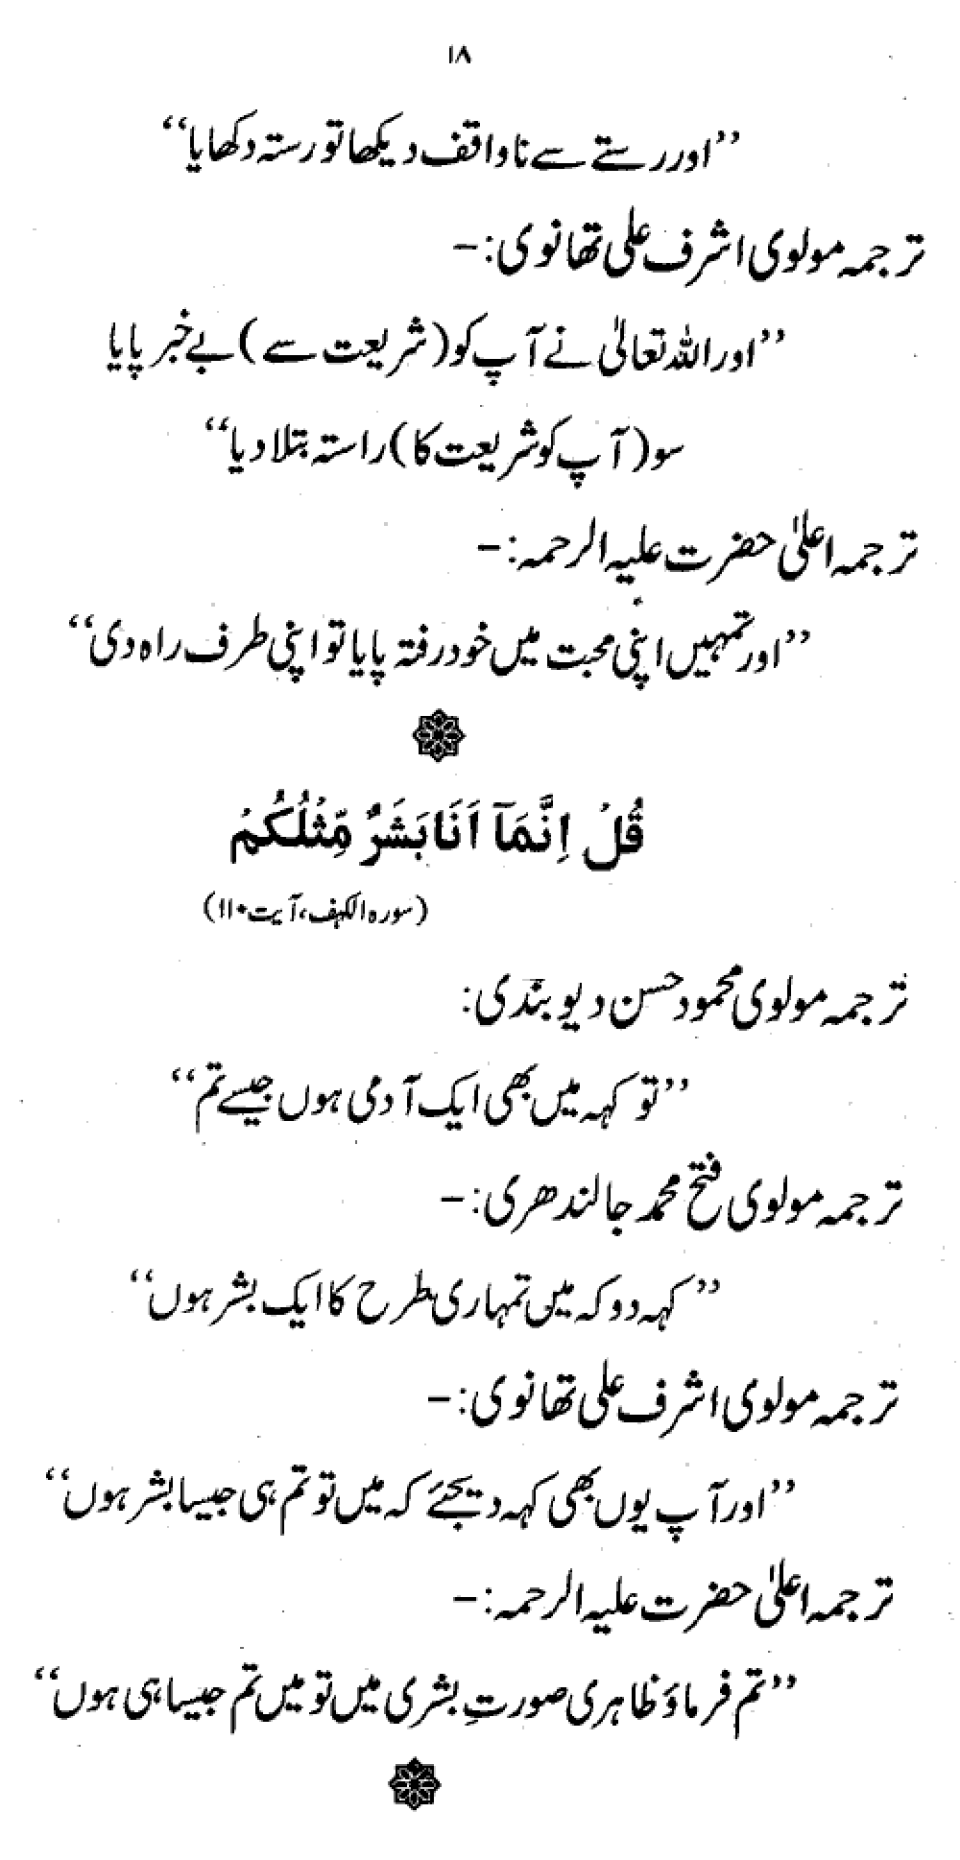 ۱۸
’’اور رستے سے ناواقف دیکھا تو رستہ دکھایا‘‘
ترجمہ مولوی اشرف علی تھانوی:-
’’اور اللہ تعالیٰ نے آپ کو (شریعت سے) بے خبر پایا
سو (آپ کو شریعت کا) راستہ بتلا دیا‘‘
ترجمہ اعلیٰ حضرت علیہ الرحمہ:-
’’اور تمہیں اپنی محبت میں خود رفتہ پایا تو اپنی طرف راہ دی‘‘
قُلْ اِنَّمَآ اَنَا بَشَرٌ مِّثْلُكُمْ
(سورہ الکہف، آیت ۱۱۰)
ترجمہ مولوی محمود حسن دیوبندی:
’’تو کہہ میں بھی ایک آدمی ہوں جیسے تم‘‘
ترجمہ مولوی فتح محمد جالندھری:-
’’کہہ دو کہ میں تمہاری طرح کا ایک بشر ہوں‘‘
ترجمہ مولوی اشرف علی تھانوی:-
’’اور آپ یوں بھی کہہ دیجئے کہ میں تو تم ہی جیسا بشر ہوں‘‘
ترجمہ اعلیٰ حضرت علیہ الرحمہ:-
’’تم فرماؤ ظاہری صورتِ بشری میں تو میں تم جیسا ہی ہوں‘‘